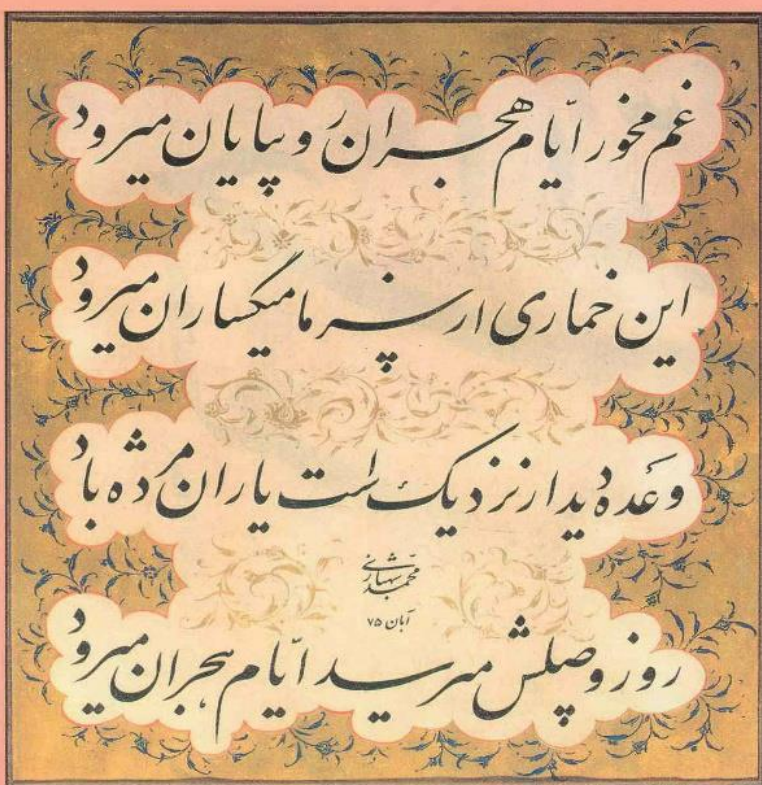 غم مخور ایّام هجران رو بپایان میرود
این خماری از سر ما میگساران میرود
وعدهٔ دیدار نزدیک است یاران مژده باد
محمد شهبازی
آبان ۷۵
روز وصلش میرسد ایّام هجران میرود